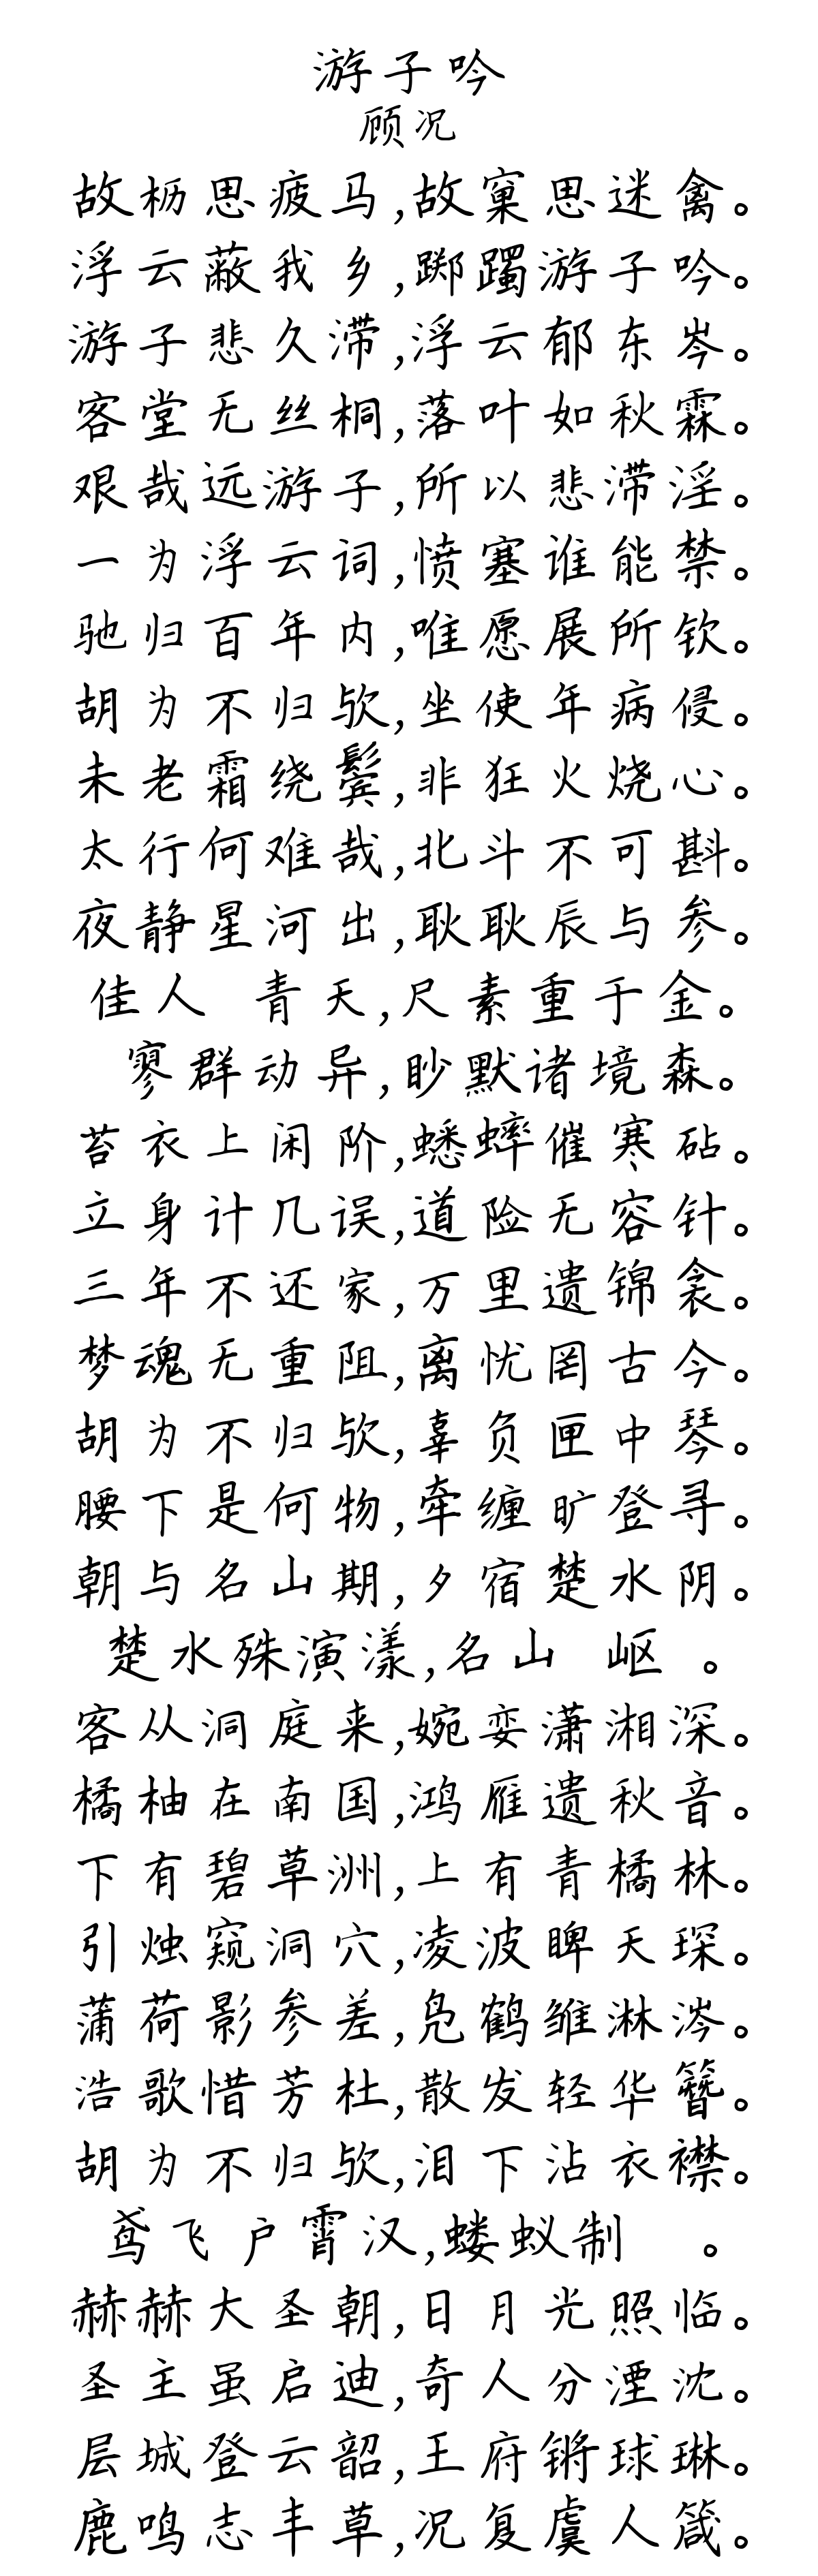 游子吟
顾况
故枥思疲马,故窠思迷禽。
浮云蔽我乡,踯躅游子吟。
游子悲久滞,浮云郁东岑。
客堂无丝桐,落叶如秋霖。
艰哉远游子,所以悲滞淫。
一为浮云词,愤塞谁能禁。
驰归百年内,唯愿展所钦。
胡为不归欤,坐使年病侵。
未老霜绕鬓,非狂火烧心。
太行何难哉,北斗不可斟。
夜静星河出,耿耿辰与参。
佳人 青天,尺素重于金。
寥群动异,眇默诸境森。
苔衣上闲阶,蟋蟀催寒砧。
立身计几误,道险无容针。
三年不还家,万里遗锦衾。
梦魂无重阻,离忧罔古今。
胡为不归欤,辜负匣中琴。
腰下是何物,牵缠旷登寻。
朝与名山期,夕宿楚水阴。
楚水殊演漾,名山 岖 。
客从洞庭来,婉娈潇湘深。
橘柚在南国,鸿雁遗秋音。
下有碧草洲,上有青橘林。
引烛窥洞穴,凌波睥天琛。
蒲荷影参差,凫鹤雏淋涔。
浩歌惜芳杜,散发轻华簪。
胡为不归欤,泪下沾衣襟。
鸢飞户霄汉,蝼蚁制 。
赫赫大圣朝,日月光照临。
圣主虽启迪,奇人分湮沈。
层城登云韶,王府锵球琳。
鹿鸣志丰草,况复虞人箴。